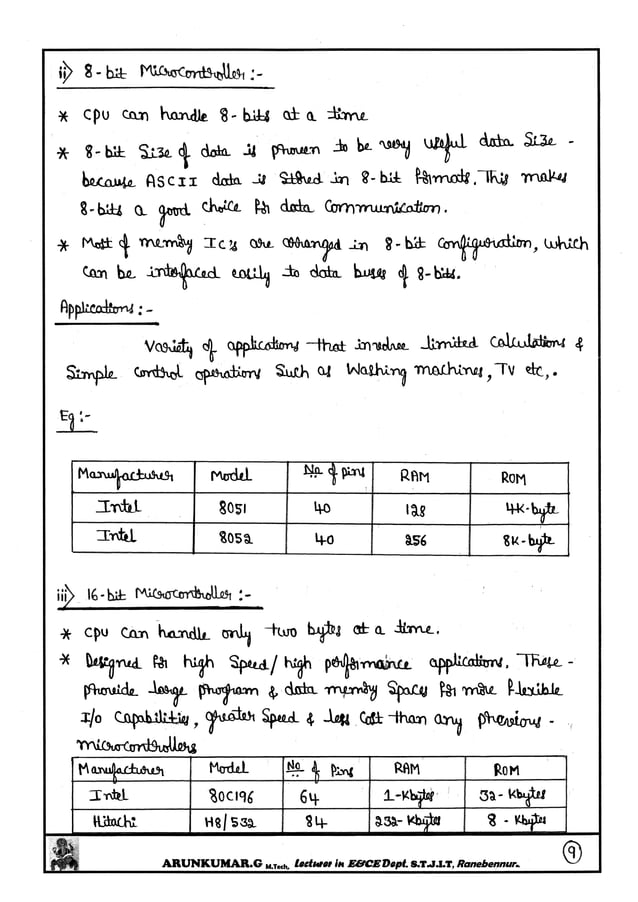 ii) 8-bit Microcontroller :-
* CPU can handle 8-bits at a time
* 8-bit Size of data is proven to be very useful data Size -
because ASCII data is stored in 8-bit formats. This makes
8-bits a good choice for data communication.
* Most of memory IC's are arranged in 8-bit configuration, which
can be interfaced easily to data buses of 8-bits.
Applications :-
Variety of applications that involve limited calculations &
Simple control operations Such as Washing machines, TV etc,.
Eg :-
Manufacturer Model No. of pins RAM ROM
Intel 8051 40 128 4K-byte
Intel 8052 40 256 8K-byte
iii) 16-bit Microcontroller :-
* CPU can handle only two bytes at a time.
* Designed for high Speed / high performance applications. These -
provide large program & data memory Spaces for more flexible
I/o Capabilities, greater Speed & less Cost than any previous -
microcontrollers
Manufacturer Model No. of Pins RAM ROM
Intel 80C196 64 1-Kbytes 32-Kbytes
Hitachi H8/532 84 232-Kbytes 8-Kbytes
ARUNKUMAR.G M.Tech, Lecturer in E&CE Dept. S.T.J.I.T, Ranebennur.
9